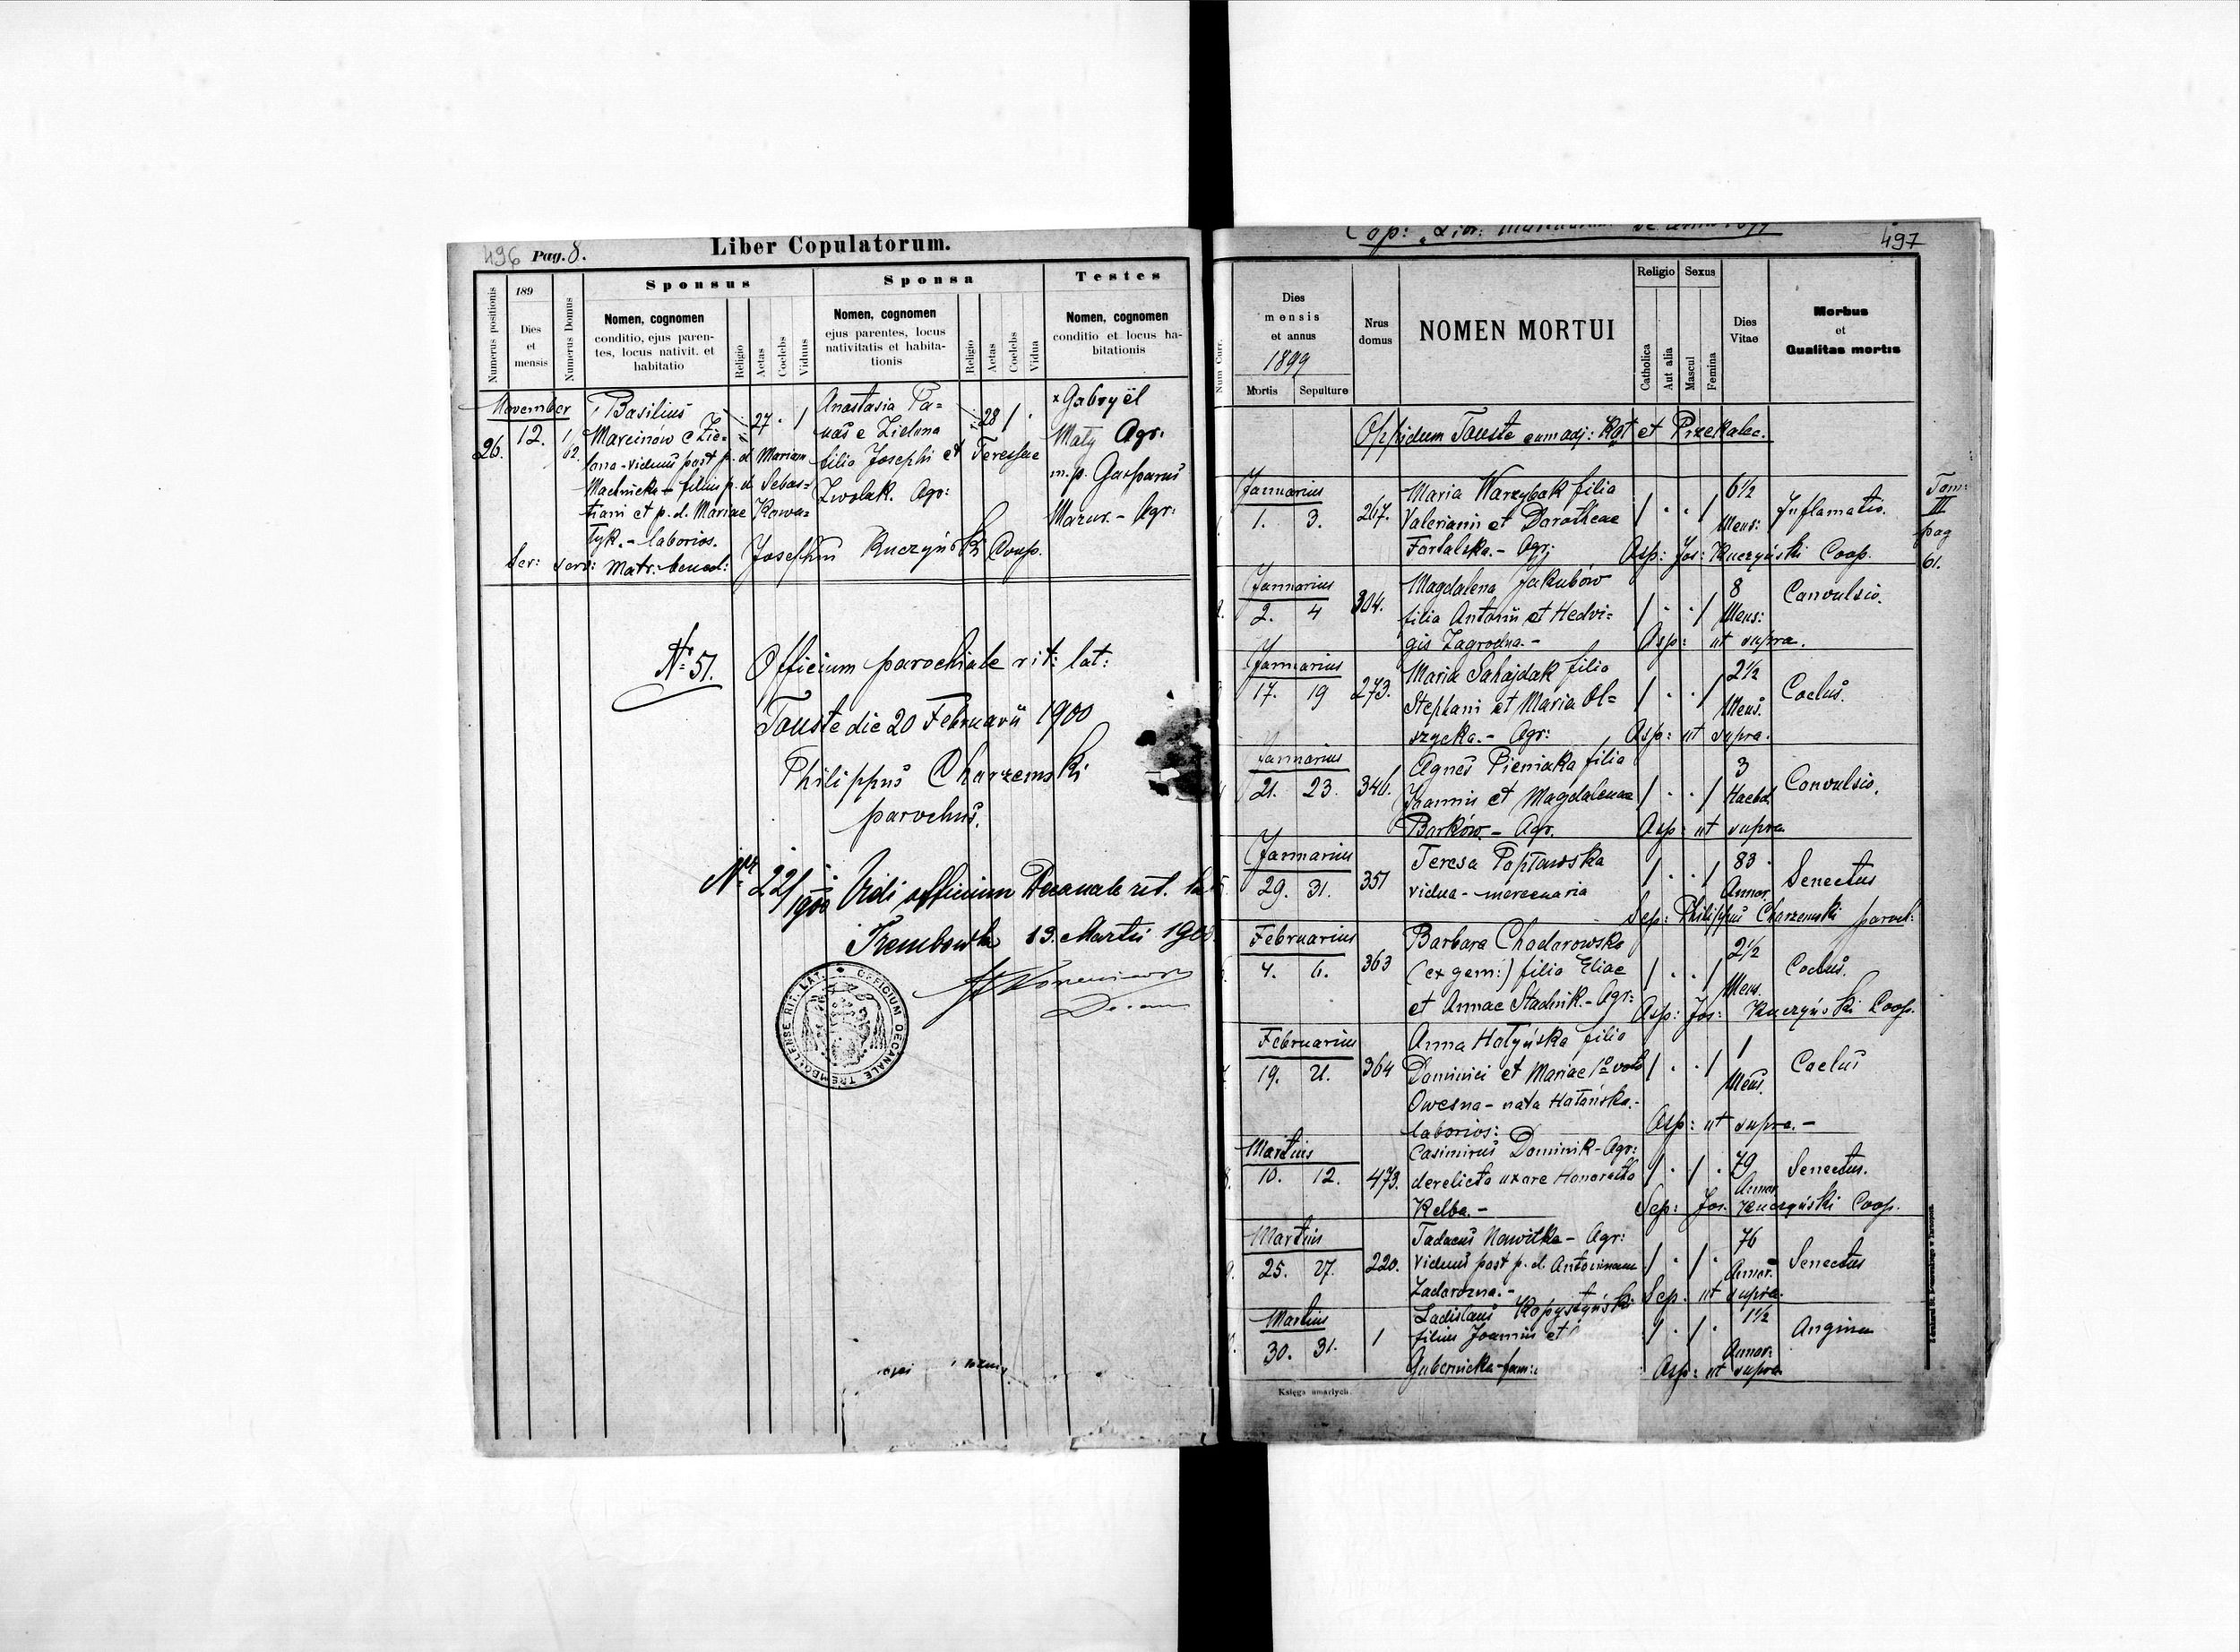 496 Pag. 8.
Liber Copulatorum.
Numerus positionis
189
Dies
et
mensis
Numerus Domus
Sponsus
Nomen, cognomen
conditio, ejus paren-
tes, locus nativit. et
habitatio
Religio
Aetas
Coelebs
Viduus
Sponsa
Nomen, cognomen
ejus parentes, locus
nativitatis et habita-
tionis
Religio
Aetas
Coelebs
Vidua
Testes
Nomen, cognomen
conditio et locus ha-
bitationis
November
26. 12.
Basilius
Marcinów e Zie=
lona - viduus post p. d. Mariam
Machnicka - filius p. d. Sebas=
tiani et p. d. Mariae Kowa=
tyk. - laborios.
27 · 1
Anastasia Pa=
nas e Zielona
filia Josephi et Teressae
Zwolak. Agr:
28 1 ·
x Gabryël
Mały Agr.
m. p. Gasparus
Mazur. - Agr:
Ser: serv: Matr: bened: Josephus Kuczyński Coop.
Nº 51. Officium parochiale rit: lat:
Touste die 20 Februarii 1900
Philippus Charzewski
parochus.
Nr 22/1900 Vidi officium Decanale rit. la
Trembowla 13. Martii 1900
OFFICIUM DECANALE TREMBOVLENSE RIT. LAT.
497
Num Curr.
Dies
mensis
et annus
1899
Mortis Sepulture
Nrus
domus
NOMEN MORTUI
Religio
Catholica
Aut alia
Sexus
Mascul
Femina
Dies
Vitae
Morbus
et
Qualitas mortis
Oppidum Touste cum adj: Kąt et Przekalec.
Januarius
1. 3. 267.
Maria Warzybok filia
Valeriani et Dorotheae
Fortalska. - Agr:
1 · · 1 6 1/2 Mens: Inflamatio.
Asp: Jos: Kuczyński Coop.
Tom:
III
pag
61.
Januarius
2. 4 304.
Magdalena Jakubów
filia Antonii et Hedvi=
gis Zagrodna. -
1 · · 1 8 Mens: Convulsio.
Asp: ut supra.
Januarius
17. 19 273.
Maria Sahajdak filia
Stephani et Maria Ol=
szycka. - Agr:
1 · · 1 2 1/2 Mens. Coelus.
Asp: ut supra.
Januarius
21. 23. 346.
Agnes Pieniaka filia
Joannis et Magdalenae
Borków. - Agr.
1 · · 1 3 Haebd. Convulsio.
Asp: ut supra
Januarius
29. 31. 351
Teresa Popławska
vidua - mercenaria
1 · · 1 83 Annor. Senectus
Sep: Philippus Charzewski paroch:
Februarius
4. 6. 363
Barbara Chodorowska
(ex gem:) filia Eliae
et Annae Stadnik. - Agr:
1 · · 1 2 1/2 Mens. Coelus.
Asp: Jos: Kuczyński Coop.
Februarius
19. 21. 364
Anna Hatyńska filia
Dominici et Mariae 1º voto
Owesna - nata Hatońska. -
laborios:
1 · · 1 1 Mens. Coelus
Asp: ut supra. -
Martius
10. 12. 473.
Casimirus Dominik - Agr:
derelicta uxore Honoratta
Kelba. -
1 · 1 · 79 Annor Senectus.
Sep: Jos. Kuczyński Coop.
Martius
25. 27. 220.
Tadaeus Nawilka - Agr:
viduus post p. d. Antoninam
Zadorozna. -
1 · 1 · 76 Annor. Senectus
Sep: ut supra.
Martius
30. 31. 1
Ladislaus Kopystyński
filius Joannis et
Gubernicka - fam:
1 · 1 · 1 1/2 Annor: Angina
Asp: ut supra
Księga umarłych